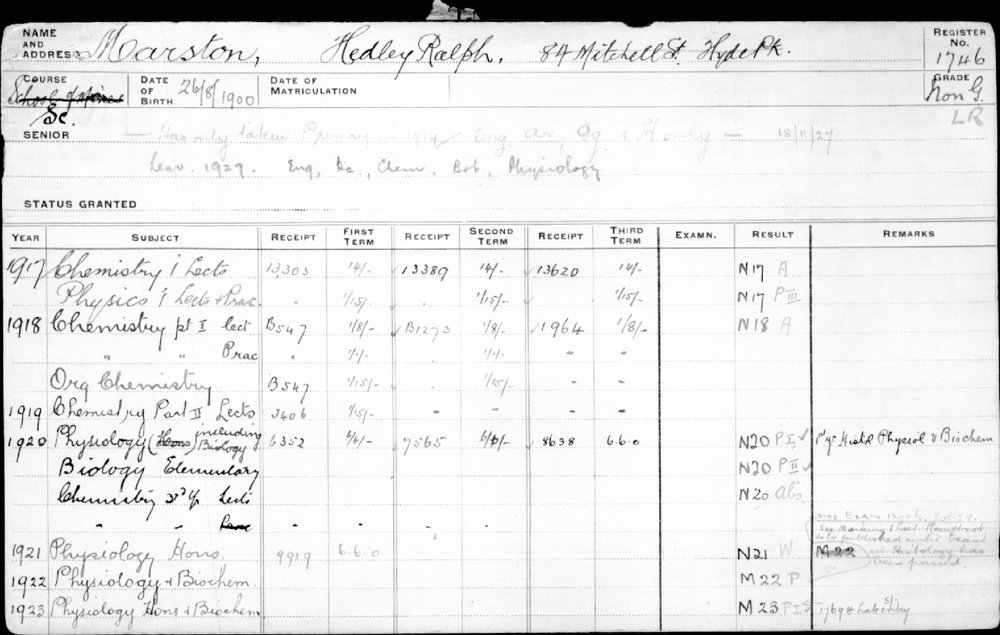 NAME AND ADDRESS Marston, Hedley Ralph, 84 Mitchell St. Hyde Pk. REGISTER No. 1746
COURSE School of Mines Sc. DATE OF BIRTH 26/8/1900 DATE OF MATRICULATION GRADE Non G. LR
SENIOR — Has only taken Primary in 1914 Eng, Ar, Ag & H only — 18/11/27
Leav. 1927. Eng, Chem, Bot, Physiology
STATUS GRANTED
YEAR SUBJECT RECEIPT FIRST TERM RECEIPT SECOND TERM RECEIPT THIRD TERM EXAMN. RESULT REMARKS
1917 Chemistry I Lects 13,303 14/- 13389 14/- 13620 14/- N17 A
Physics I Lects & Prac. " 1/15/- " 1/15/- " 1/15/- N17 P III
1918 Chemistry pt I lect B547 1/8/- B1273 1/8/- 1964 1/8/- N18 A
" " Prac " 1/1/- " 1/1/- " "
Org Chemistry B547 1/15/- 1/15/- " "
1919 Chemistry Part II Lects 3406 1/15/- " " " "
1920 Physiology (Hons) including Biology 6352 6/6/- 7565 6/6/- 8638 6.6.0 N20 P I 1st yr Histol Physiol & Biochem
Biology Elementary N20 P II
Chemistry 3rd yr Lects N20 Abs
" " Prac
Exam Book
See Manning's Lect.
to be published until Exam
1921 Physiology Hons. 9919 6.6.0 N21 W M22 in Histology has
been passed
1922 Physiology & Biochem. M22 P
1923 Physiology Hons & Biochem M23 P I